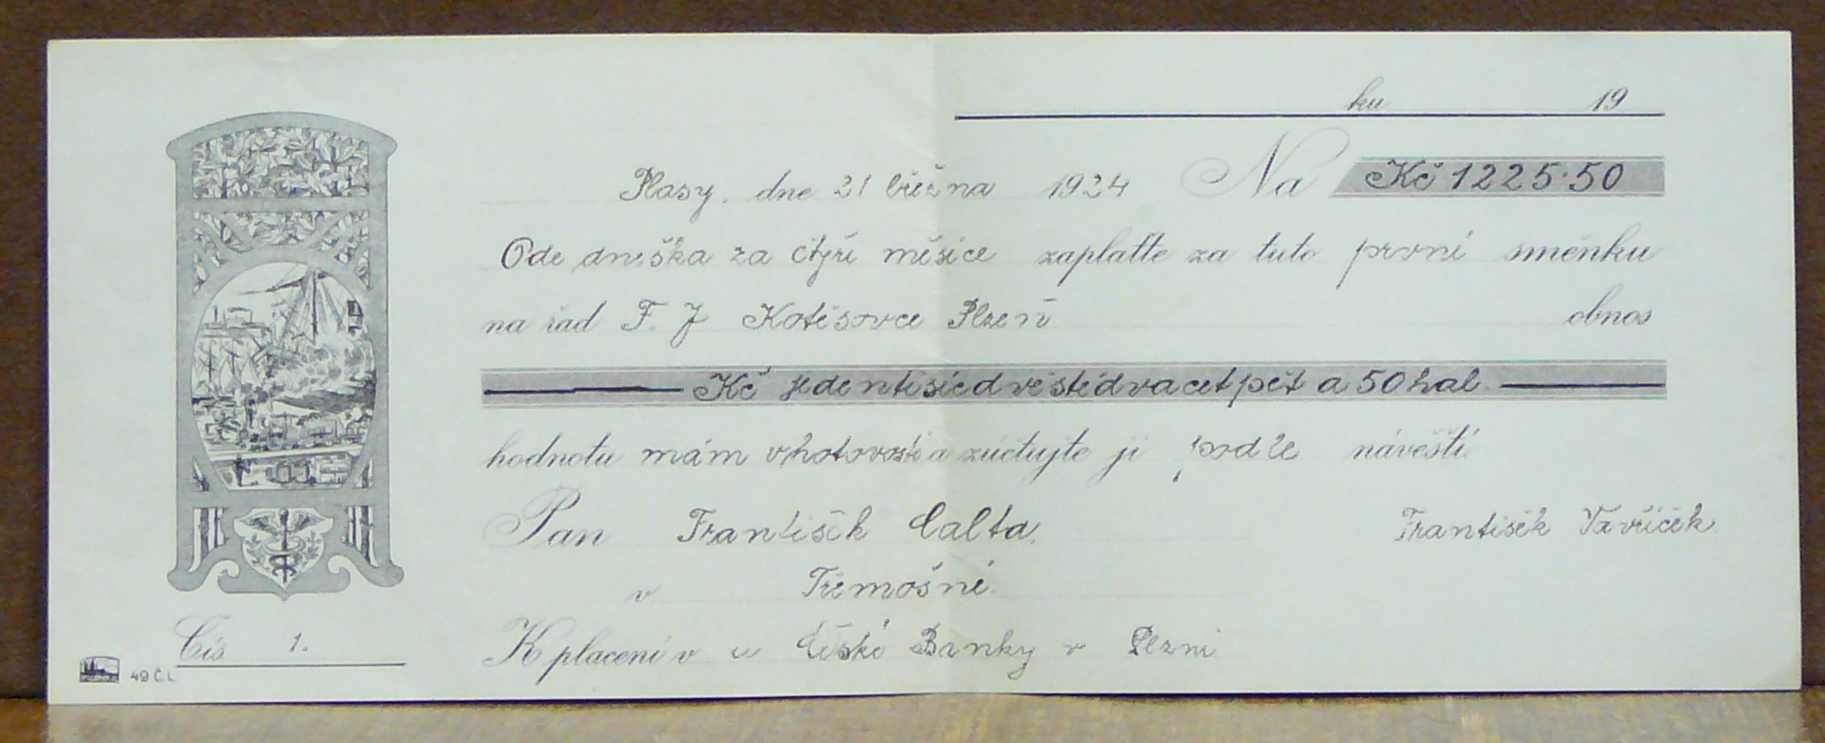 ku 19
Plasy, dne 21 března 1924 Na Kč 1225·50
Ode dneška za čtyři měsíce zaplaťte za tuto první směnku
na řad F. J Kotěšovce Plzeň obnos
Kč jedentisícdvěstědvacetpět a 50 hal
hodnotu mám v hotovosti a zúčtujte ji podle návěští
Pan František Calta, František Vavříček
v Třemošné.
Čís 1. K placení v u České Banky v Plzni
49 Č.L.